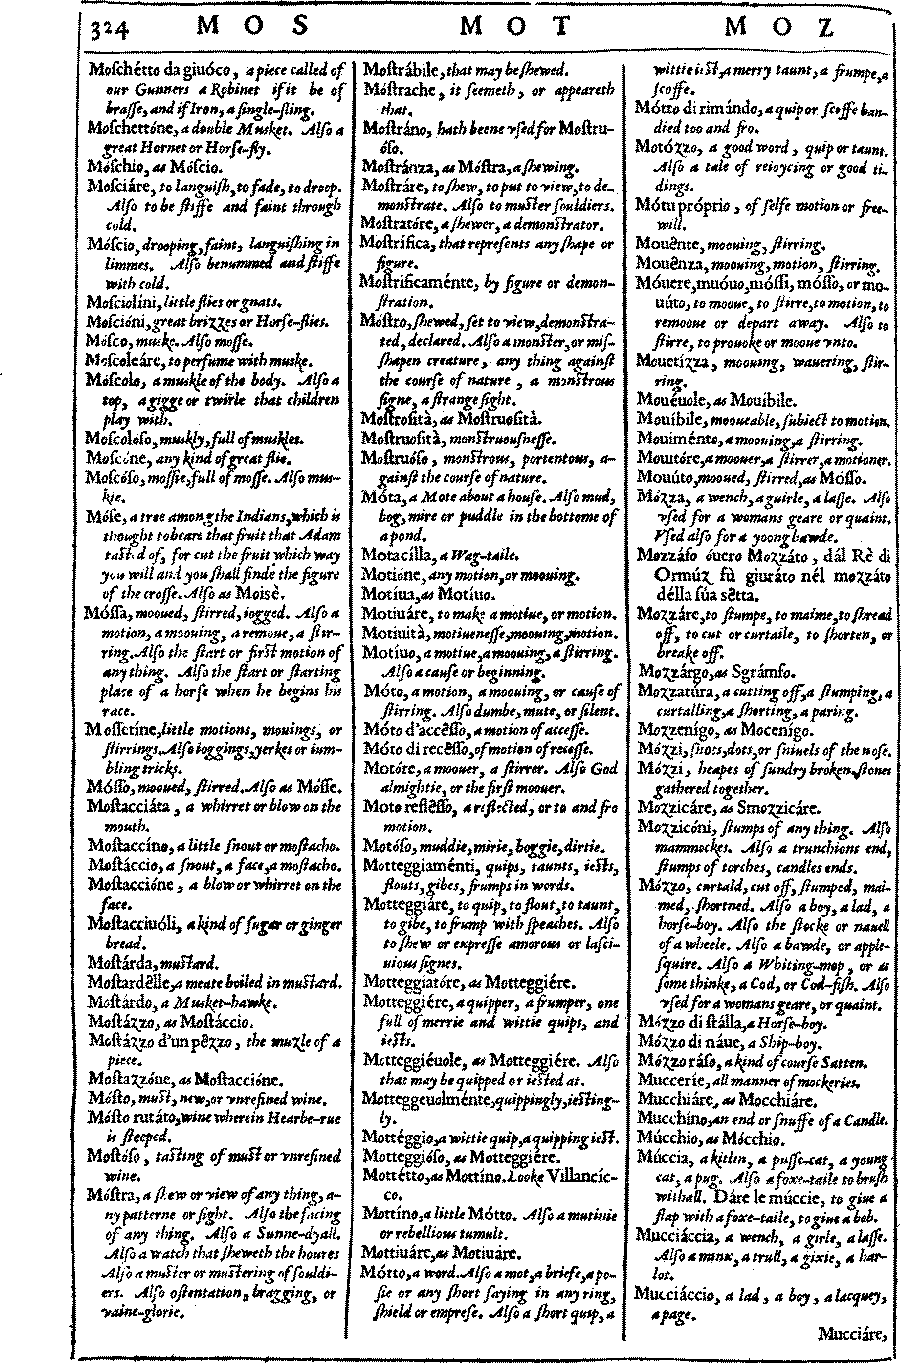 324 MOS MOT MOZ
Moſchétto da giuóco, a piece called of
our Gunners a Robinet if it be of
braſſe, and if Iron, a ſingle-ſling.
Moſchettóne, a double Musket. Alſo a
great Hornet or Horſe-fly.
Móſchio, as Móſcio.
Moſciáre, to languiſh, to fade, to droop.
Alſo to be ſtiffe and faint through
cold.
Móſcio, drooping, faint, languiſhing in
limmes. Alſo benummed and ſtiffe
with cold.
Moſciolíni, little flies or gnats.
Moſcióni, great brizzes or Horſe-flies.
Móſco, muske. Alſo moſſe.
Moſcoleáre, to perfume with muske.
Móſcolo, a muskle of the body. Alſo a
top, a gigge or twirle that children
play with.
Moſcolóſo, muskly, full of muskles.
Moſcóne, any kind of great flie.
Moſcóſo, moſſie, full of moſſe. Alſo mus-
kie.
Móſe, a tree among the Indians, which is
thought to beare that fruit that Adam
taſted of, for cut the fruit which way
you will and you ſhall finde the figure
of the croſſe. Alſo as Moisè.
Móſſa, mooued, ſtirred, iogged. Alſo a
motion, a moouing, a remoue, a ſtir-
ring. Alſo the ſtart or firſt motion of
any thing. Alſo the ſtart or ſtarting
place of a horſe when he begins his
race.
Moſſetíne, little motions, mouings, or
ſtirrings. Alſo ioggings, yerkes or ium-
bling tricks.
Móſſo, mooued, ſtirred. Alſo as Móſſe.
Moſtacciáta, a whirret or blow on the
mouth.
Moſtaccíno, a little ſnout or moſtacho.
Moſtáccio, a ſnout, a face, a moſtacho.
Moſtaccióne, a blow or whirret on the
face.
Moſtacciuóli, a kind of ſugar or ginger
bread.
Moſtárda, muſtard.
Moſtardêlle, a meate boiled in muſtard.
Moſtárdo, a Musket-hawke.
Moſtázzo, as Moſtáccio.
Moſtázzo d'un pêzzo, the muzle of a
piece.
Moſtazzóne, as Moſtaccióne.
Móſto, muſt, new, or vnrefined wine.
Móſto rutáto, wine wherein Hearbe-rue
is ſteeped.
Moſtóſo, taſting of muſt or vnrefined
wine.
Móſtra, a ſhew or view of any thing, a-
ny patterne or ſight. Alſo the facing
of any thing. Alſo a Sunne-dyall.
Alſo a watch that ſheweth the houres
Alſo a muſter or muſtering of ſouldi-
ers. Alſo oſtentation, bragging, or
vaine-glorie.
Moſtrábile, that may be ſhewed.
Móſtrache, it ſeemeth, or appeareth
that.
Moſtráno, hath beene vſed for Moſtru-
óſo.
Moſtránza, as Móſtra, a ſhewing.
Moſtráre, to ſhew, to put to view, to de-
monſtrate. Alſo to muſter ſouldiers.
Moſtratóre, a ſhewer, a demonſtrator.
Moſtrífica, that repreſents any ſhape or
figure.
Moſtrificaménte, by figure or demon-
ſtration.
Móſtro, ſhewed, ſet to view, demonſtra-
ted, declared. Alſo a monſter, or miſ-
ſhapen creature, any thing againſt
the courſe of nature, a monſtrous
ſigne, a ſtrange ſight.
Moſtroſità, as Moſtruoſità.
Moſtruoſità, monſtruouſneſſe.
Moſtruóſo, monſtrous, portentous, a-
gainſt the courſe of nature.
Móta, a Mote about a houſe. Alſo mud,
bog, mire or puddle in the bottome of
a pond.
Motacílla, a Wag-taile.
Motióne, any motion, or moouing.
Motíua, as Motíuo.
Motiuáre, to make a motiue, or motion.
Motiuità, motiueneſſe, moouing, motion.
Motíuo, a motiue, a moouing, a ſtirring.
Alſo a cauſe or beginning.
Móto, a motion, a moouing, or cauſe of
ſtirring. Alſo dumbe, mute, or ſilent.
Móto d'accêſſo, a motion of acceſſe.
Móto di recêſſo, of motion of receſſe.
Motóre, a moouer, a ſtirrer. Alſo God
almightie, or the firſt moouer.
Moto reflêſſo, a reflected, or to and fro
motion.
Motóſo, muddie, mirie, boggie, dirtie.
Motteggiaménti, quips, taunts, ieſts,
flouts, gibes, frumps in words.
Motteggiáre, to quip, to flout, to taunt,
to gibe, to frump with ſpeaches. Alſo
to ſhew or expreſſe amorous or laſci-
uious ſignes.
Motteggiatóre, as Motteggiére.
Motteggiére, a quipper, a frumper, one
full of merrie and wittie quips, and
ieſts.
Motteggiéuole, as Motteggiére. Alſo
that may be quipped or ieſted at.
Motteggeuolménte, quippingly, ieſting-
ly.
Mottéggio, a wittie quip, a quipping ieſt.
Motteggióſo, as Motteggiére.
Mottétto, as Mottíno. Looke Villancíc-
co.
Mottíno, a little Mótto. Alſo a mutinie
or rebellious tumult.
Mottiuáre, as Motiuáre.
Mótto, a word. Alſo a mot, a briefe, a po-
ſie or any ſhort ſaying in any ring,
ſhield or empreſe. Alſo a ſhort quip, a
wittie ieſt, a merry taunt, a frumpe, a
ſcoffe.
Mótto di rimándo, a quip or ſcoffe ban-
died too and fro.
Motózzo, a good word, quip or taunt.
Alſo a tale of reioycing or good ti-
dings.
Mótu próprio, of ſelfe motion or free-
will.
Mouênte, moouing, ſtirring.
Mouênza, moouing, motion, ſtirring.
Móuere, muóuo, móſſi, móſſo, or mo-
uúto, to mooue, to ſtirre, to motion, to
remooue or depart away. Alſo to
ſtirre, to prouoke or mooue vnto.
Mouetízza, moouing, wauering, ſtir-
ring.
Mouéuole, as Mouíbile.
Mouíbile, mooueable, ſubiect to motion.
Mouiménto, a moouing, a ſtirring.
Mouitóre, a moouer, a ſtirrer, a motioner.
Mouúto, mooued, ſtirred, as Móſſo.
Mózza, a wench, a guirle, a laſſe. Alſo
vſed for a womans geare or quaint.
Vſed alſo for a yoong bawde.
Mozzáſo óuero Mozzáto, dál Rè di
Ormúz fù giuráto nél mozzáto
délla ſúa sêtta.
Mozzáre, to ſtumpe, to maime, to ſhread
off, to cut or curtaile, to ſhorten, or
breake off.
Mozzárgo, as Sgrámfo.
Mozzatúra, a cutting off, a ſtumping, a
curtalling, a ſhorting, a paring.
Mozzenígo, as Mocenígo.
Mózzi, ſnots, dots, or ſniuels of the noſe.
Mózzi, heapes of ſundry broken ſtones
gathered together.
Mozzicáre, as Smozzicáre.
Mozzicóni, ſtumps of any thing. Alſo
mammockes. Alſo a trunchions end,
ſtumps of torches, candles ends.
Mózzo, curtald, cut off, ſtumped, mai-
med, ſhortned. Alſo a boy, a lad, a
horſe-boy. Alſo the ſtocke or nauell
of a wheele. Alſo a bawde, or apple-
ſquire. Alſo a Whiting-mop, or as
ſome thinke, a Cod, or Cod-fiſh. Alſo
vſed for a womans geare, or quaint.
Mózzo di ſtálla, a Horſe-boy.
Mózzo di náue, a Ship-boy.
Mózzo ráſo, a kind of courſe Satten.
Muccerie, all manner of mockeries.
Mucchiáre, as Mocchiáre.
Mucchíno, an end or ſnuffe of a Candle.
Múcchio, as Mócchio.
Múccia, a kitlin, a puſſe-cat, a young
cat, a pug. Alſo a foxe-taile to bruſh
withall. Dáre le múccie, to giue a
flap with a foxe-taile, to giue a bob.
Mucciáccia, a wench, a girle, a laſſe.
Alſo a minx, a trull, a gixie, a har-
lot.
Mucciáccio, a lad, a boy, a lacquey,
a page.
Mucciáre,